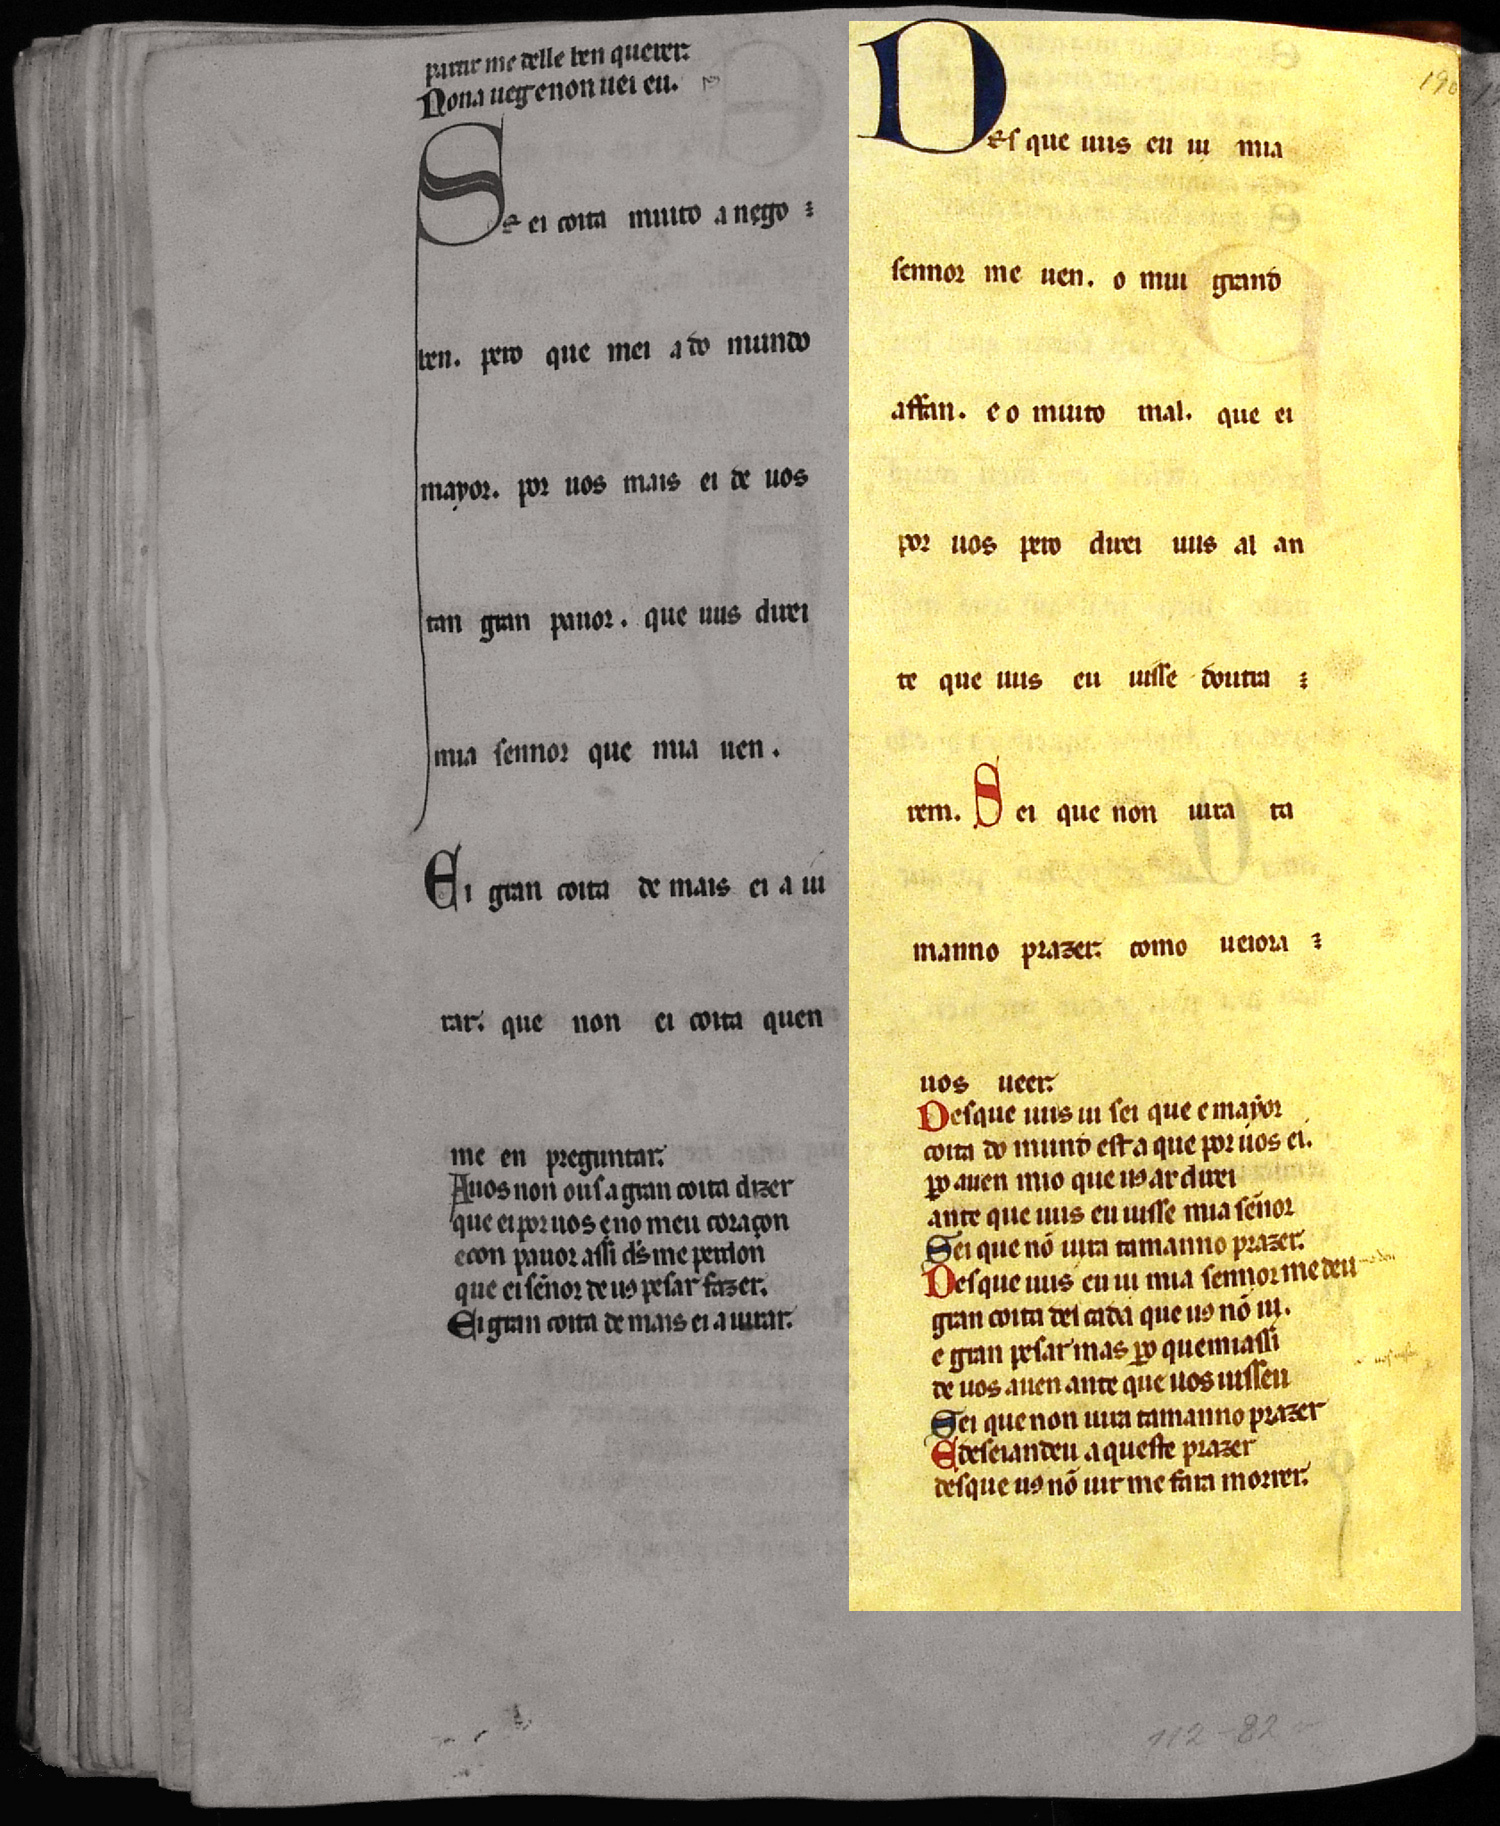 partir me delle ben querer.
Nona ueg e non uei eu.
Se ei coita muito a nego :
ben. pero que mei a do mundo
mayor. por uos mais ei de uos
tan gran pauor. que uus direi
mia sennor que mia uen.
Ei gran coita de mais ei a iu
rar. que non ei coita quen
me en preguntar.
A uos non ous a gran coita dizer
que ei por uos eno meu coraçon
e con pauor assi d̃s me perdon
que ei sẽnor de uꝯ pesar fazer.
Ei gran coita de mais ei a iurar.
Des que uus eu ui mia
sennor me uen. o mui grand
affan. e o muito mal. que ei
por uos pero direi uus al an
te que uus eu uisse doutra :
rem. Sei que non uira ta
manno prazer. como ueiora :
uos ueer.
Desque uus ui sei que e mayor
coita do mund est a que por uos ei.
ꝑo auen mio que uꝯ ar direi
ante que uus eu uisse mia sẽnor
Sei que nõ uira tamanno prazer.
Desque uus eu ui mia sennor me deu
gran coita deꝯ cada que uꝯ nõ ui.
e gran pesar mas ꝑo que miassi
de uos auen ante que uos uisseu
Sei que non uira tamanno prazer
E deseiandeu a queste prazer
desque uꝯ nõ uir me fara morrer.
190
112-82